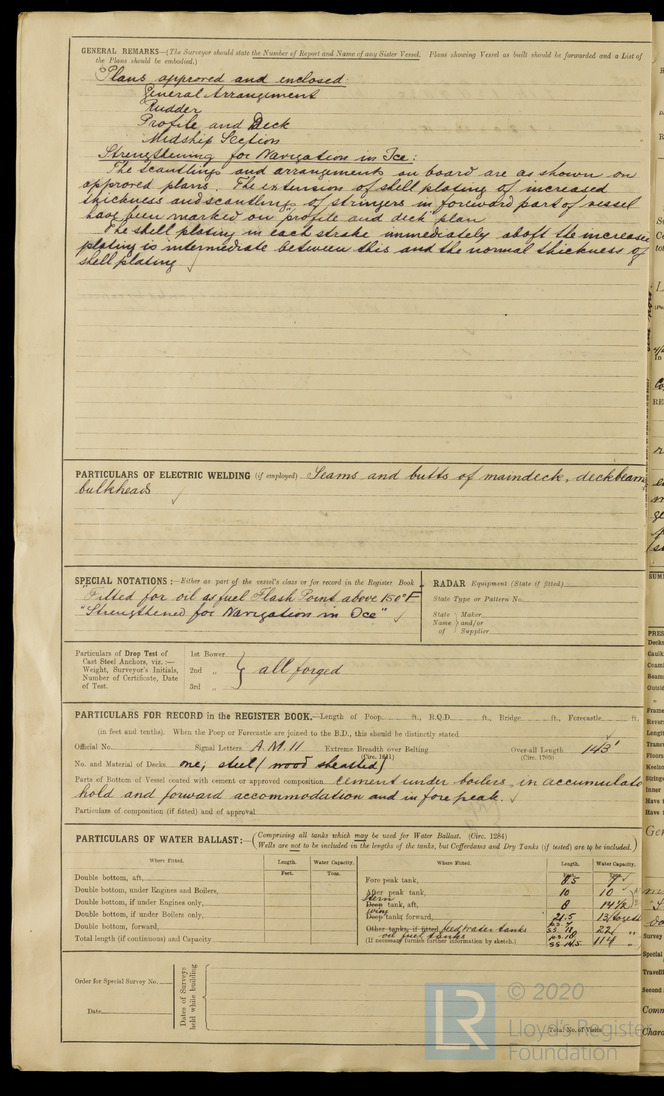 GENERAL REMARKS—(The Surveyor should state the Number of Report and Name of any Sister Vessel. Plans showing Vessel as built should be forwarded and a List of
the Plans should be embodied.)
Plans approved and enclosed:
General Arrangement
Rudder
Profile and Deck
Midship Section
Strengthening for Navigation in Ice:
The scantlings and arrangements on board are as shown on
approved plans. The extension of shell plating of increased
thickness and scantlings of stringers in foreward part of vessel
have been marked on "profile and deck" plan
The shell plating in each strake immediately abaft the increase
plating is intermediate between this and the normal thickness of
shell plating
PARTICULARS OF ELECTRIC WELDING (if employed) Seams and butts of maindeck, deckbeam
bulkheads
SPECIAL NOTATIONS:—Either as part of the vessel's class or for record in the Register Book
"Fitted for oil as fuel Flash Point above 150°F
"Strengthened for Navigation in Ice"
RADAR Equipment (State if fitted)
State Type or Pattern No.
State Maker
Name and/or
of Supplier
Particulars of Drop Test of
Cast Steel Anchors, viz.:—
Weight, Surveyor's Initials,
Number of Certificate, Date
of Test.
1st Bower
2nd „
3rd „
all forged
PARTICULARS FOR RECORD in the REGISTER BOOK.—Length of Poop ft., R.Q.D. ft., Bridge ft., Forecastle ft.
(in feet and tenths). When the Poop or Forecastle are joined to the B.D., this should be distinctly stated
Official No. Signal Letters Extreme Breadth over Belting Over-all Length 143'
(Circ. 1611) (Circ. 1703)
No. and Material of Decks one, steel (wood sheathed)
Parts of Bottom of Vessel coated with cement or approved composition cement under boilers, in accumulato
hold and forward accommodation and in fore peak.
Particulars of composition (if fitted) and of approval
PARTICULARS OF WATER BALLAST:—(Comprising all tanks which may be used for Water Ballast. (Circ. 1284)
Wells are not to be included in the lengths of the tanks, but Cofferdams and Dry Tanks (if tested) are to be included.)
Where Fitted. Length. Water Capacity. Where Fitted. Length. Water Capacity.
Feet. Tons.
Double bottom, aft, Fore peak tank, 8.5 9
Double bottom, under Engines and Boilers, After peak tank, 10 10
Double bottom, if under Engines only, Deep Stern tank, aft, 8
Double bottom, if under Boilers only, Deep tank, forward, 21.5
Double bottom, forward, Other tanks, if fitted feed water tanks
oil fuel tanks 114
Total length (if continuous) and Capacity (If necessary furnish further information by sketch.)
Order for Special Survey No.
Date
Dates of Surveys
held while building
Total No. of Visits
LR
© 2020
Lloyd's Register
Foundation